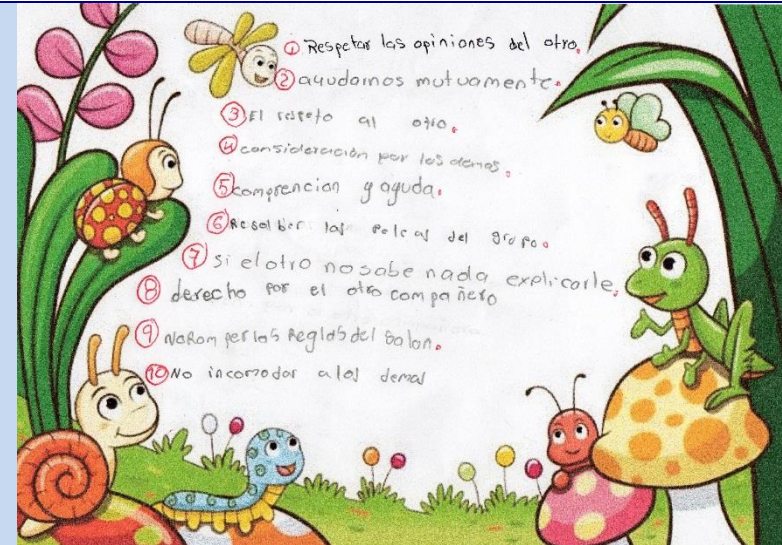 1 Respetar las opiniones del otro.
2 ayudarnos mutuamente.
3 El respeto al otro.
4 consideración por los demas.
5 comprencion y aguda.
6 Resolber las peleas del grupo.
7 si el otro no sabe nada explicarle.
8 derecho por el otro compañero
9 No Romper las Reglas del Salon.
10 No incomodar a los demas